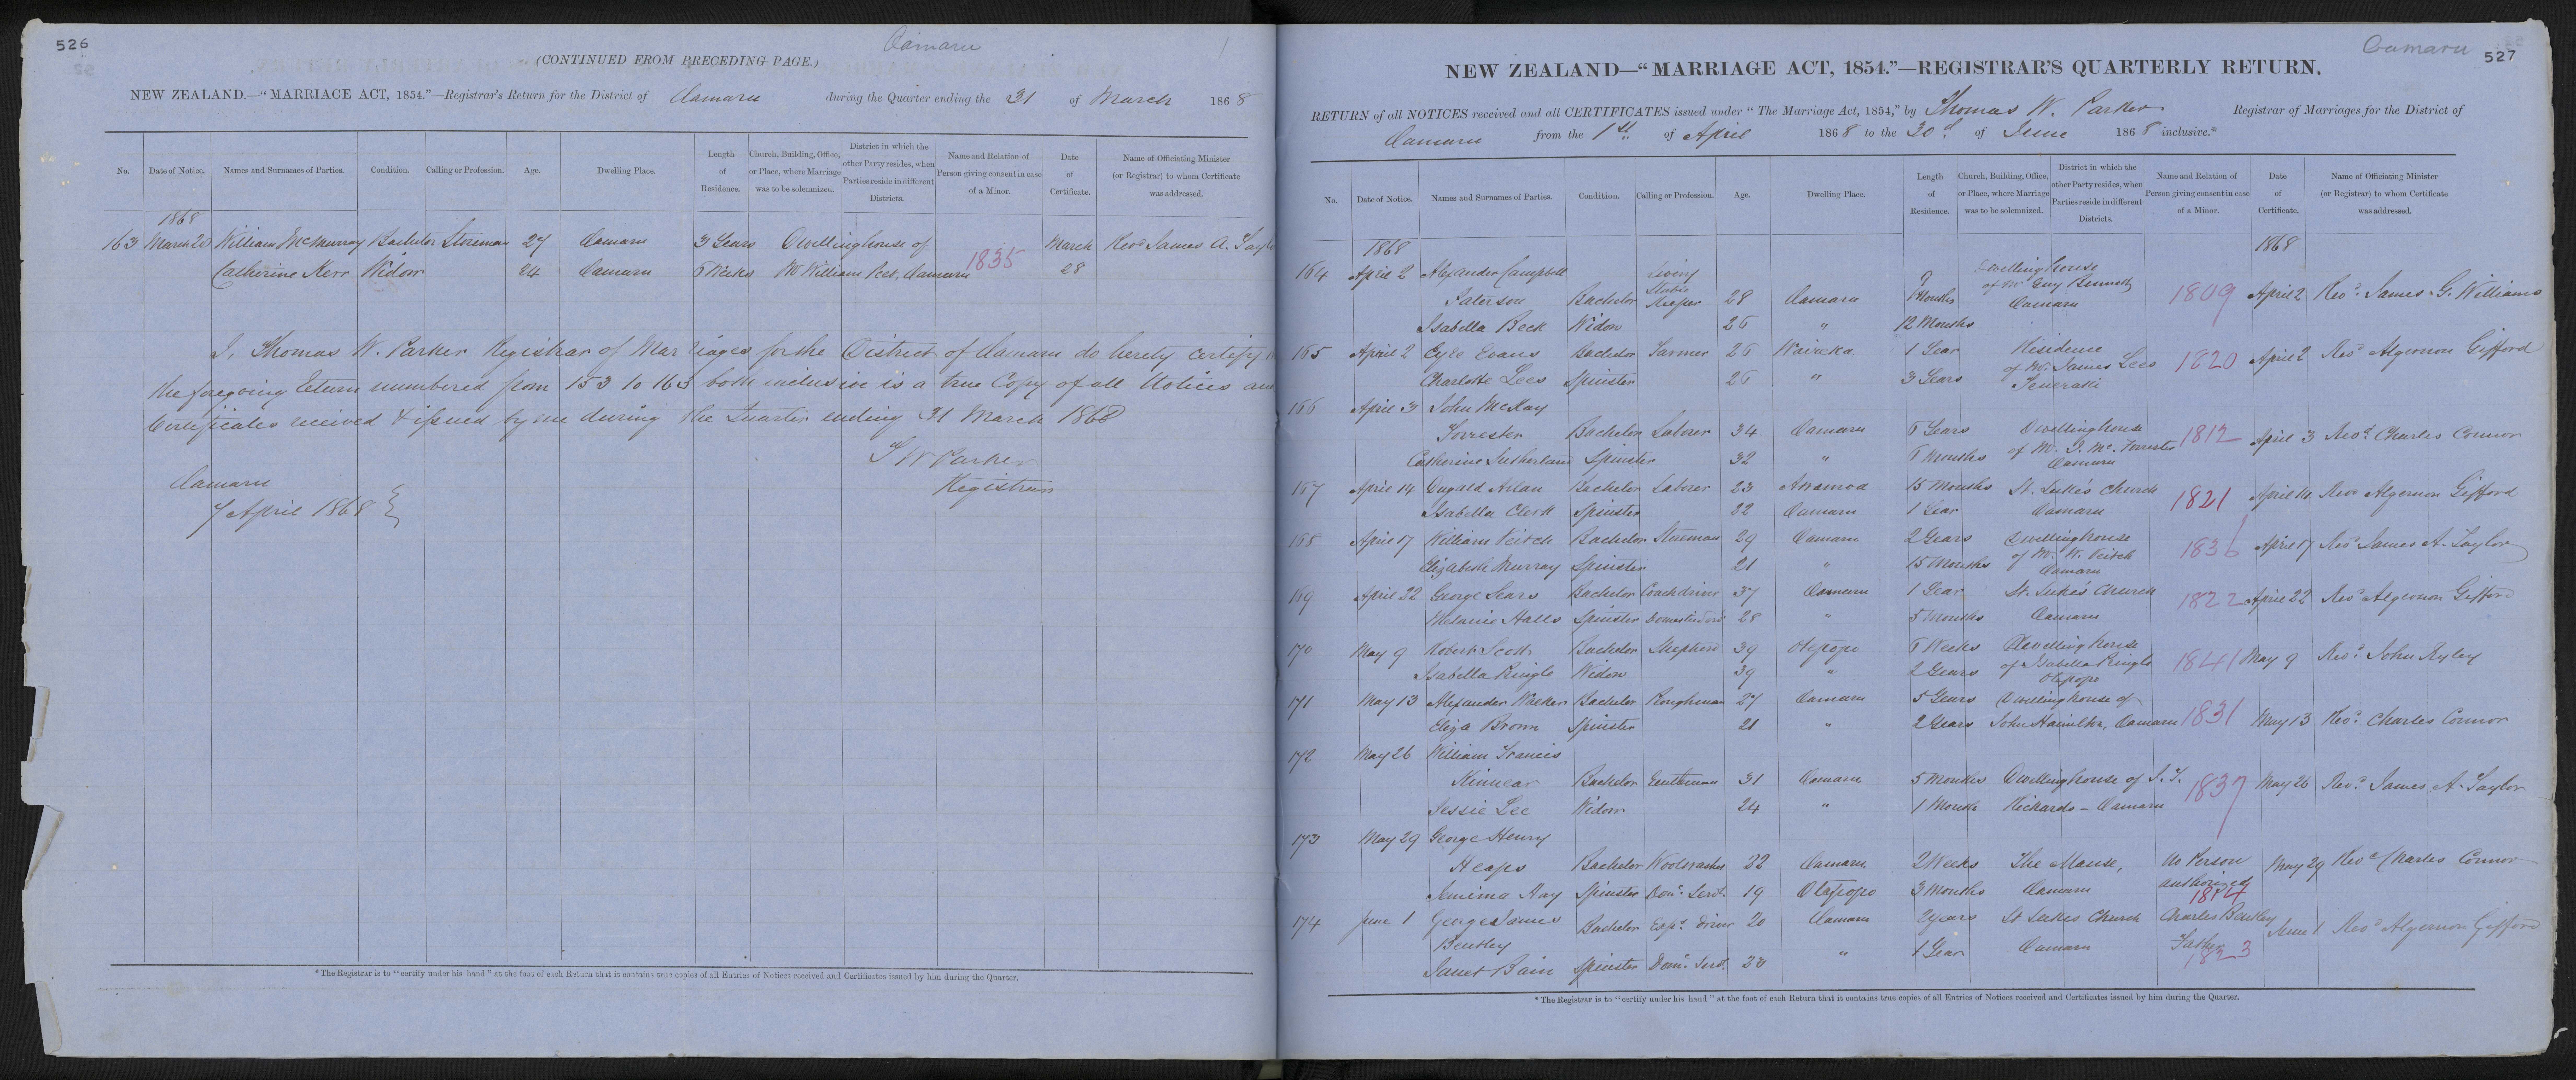 526
Oamaru
(CONTINUED FROM PRECEDING PAGE.)
NEW ZEALAND.—"MARRIAGE ACT, 1854."—Registrar's Return for the District of Oamaru during the Quarter ending the 31 of March 1868
No. Date of Notice. Names and Surnames of Parties. Condition. Calling or Profession. Age. Dwelling Place. Length of Residence. Church, Building, Office, or Place, where Marriage was to be solemnized. District in which the other Party resides, when Parties reside in different Districts. Name and Relation of Person giving consent in case of a Minor. Date of Certificate. Name of Officiating Minister (or Registrar) to whom Certificate was addressed.
1868
163 March 28 William McMurray Bachelor Storeman 27 Oamaru 3 Years Dwelling house of March Revd James A. Taylo
Catherine Kerr Widow 24 Oamaru 6 Weeks Mr William Peet, Oamaru 1835 28
I, Thomas W. Parker Registrar of Marriages for the District of Oamaru do hereby certify
the foregoing Return numbered from 153 to 163 both inclusive is a true Copy of all Notices and
Certificates received & issued by me during the Quarter ending 31 March 1868
T W Parker
Registrar
Oamaru
7 April 1868
*The Registrar is to "certify under his hand" at the foot of each Return that it contains true copies of all Entries of Notices received and Certificates issued by him during the Quarter.
Oamaru
527
NEW ZEALAND—"MARRIAGE ACT, 1854."—REGISTRAR'S QUARTERLY RETURN.
RETURN of all NOTICES received and all CERTIFICATES issued under "The Marriage Act, 1854," by Thomas W. Parker Registrar of Marriages for the District of
Oamaru from the 1st of April 1868 to the 30 of June 1868 inclusive.*
No. Date of Notice. Names and Surnames of Parties. Condition. Calling or Profession. Age. Dwelling Place. Length of Residence. Church, Building, Office, or Place, where Marriage was to be solemnized. District in which the other Party resides, when Parties reside in different Districts. Name and Relation of Person giving consent in case of a Minor. Date of Certificate. Name of Officiating Minister (or Registrar) to whom Certificate was addressed.
1868 1868
164 April 2 Alexander Campbell Livery Stable 9 Dwelling house
Paterson Bachelor Keeper 28 Oamaru Months of Mr Guy Bennett Oamaru 1809 April 2 Revd. James G. Williams
Isabella Beck Widow 26 " 12 Months
165 April 2 Eyre Evans Bachelor Farmer 26 Waireka 1 Year Residence 1820 April 2 Revd Algernon Gifford
Charlotte Lees Spinster 26 " 3 Years of Mr. James Lees
166 April 3 John McKay
Forrester Bachelor Laborer 34 Oamaru 6 Years Dwelling house 1812 April 3 Revd Charles Connor
Catherine Sutherland Spinster 32 " 6 Months of Mr. J. Mc. Forrester Oamaru
167 April 14 Dugald Allan Bachelor Laborer 23 Awamoa 15 Months St. Luke's Church 1821 April 14 Revd Algernon Gifford
Isabella Clerk Spinster 22 Oamaru 1 Year Oamaru
168 April 17 William Veitch Bachelor Storeman 29 Oamaru 2 Years Dwelling house 1836 April 17 Revd James A. Taylor
Elizabeth Murray Spinster 21 " 15 Months of Mr. W. Veitch Oamaru
169 April 22 George Sears Bachelor Coachdriver 37 Oamaru 1 Year St. Luke's Church 1822 April 22 Revd Algernon Gifford
Melanie Halls Spinster 28 " 5 Months Oamaru
170 May 9 Robert Scott Bachelor Shepherd 39 Otepopo 6 Weeks Dwelling house 1841 May 9 Revd. John Ryley
Isabella Pringle Widow 39 " 2 Years of Isabella Pringle Otepopo
171 May 13 Alexander Walker Bachelor Ploughman 27 Oamaru 5 Years Dwelling house of
Eliza Brown Spinster 21 " 2 Years John Hamilton, Oamaru 1831 May 13 Revd. Charles Connor
172 May 26 William Francis
Kinnear Bachelor Gentleman 31 Oamaru 5 Months Dwelling house of J. T. 1837 May 26 Revd. James A. Taylor
Jessie Lee Widow 24 " 1 Month Richards - Oamaru
173 May 29 George Henry
Heaps Bachelor Woolwasher 22 Oamaru 2 Weeks The Manse, No Person May 29 Revd Charles Connor
Jemima Hay Spinster Dom. Servt. 19 Otepopo 3 Months Oamaru authorized 1814
174 June 1 George James Bachelor Exps. driver 20 Oamaru 2 years St Lukes Church Charles Bentley June 1 Revd Algernon Gifford
Bentley " 1 Year Oamaru Father 1823
Janet Bain Spinster Dom. Servt. 20
*The Registrar is to "certify under his hand" at the foot of each Return that it contains true copies of all Entries of Notices received and Certificates issued by him during the Quarter.